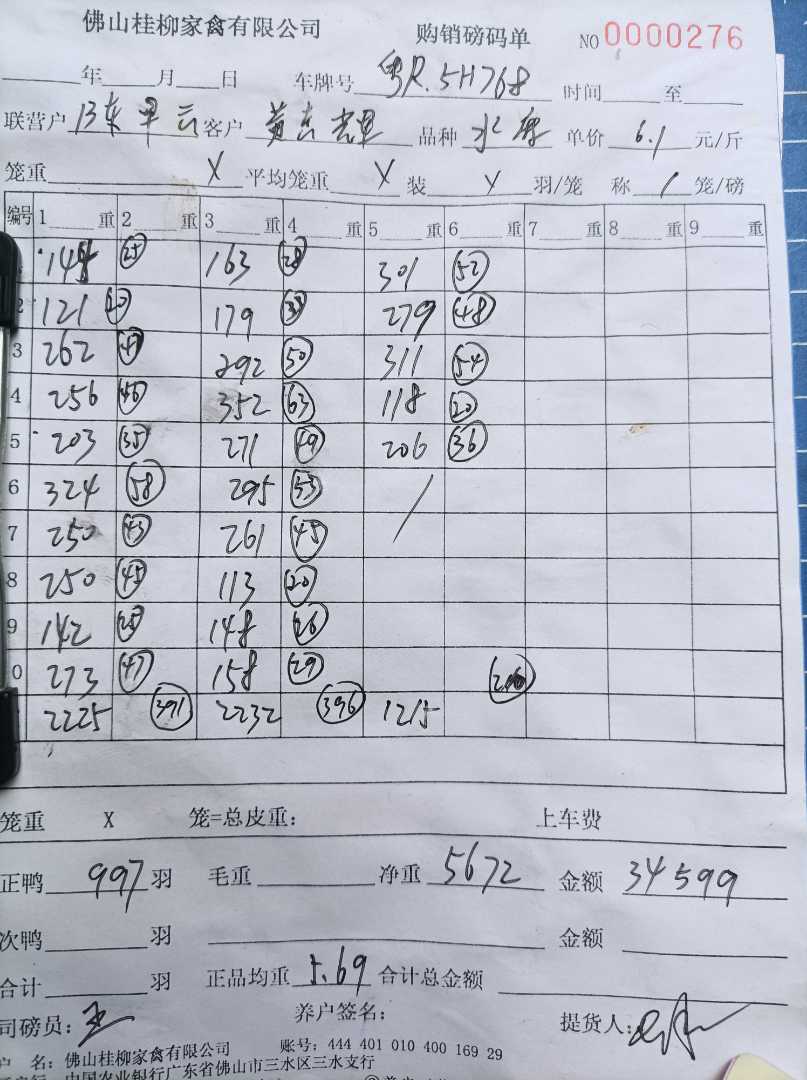 佛山桂柳家禽有限公司 购销磅码单 NO 0000276
年 月 日 车牌号 粤R.5H768 时间 至
联营户 客户 黄志辉 品种 水 单价 6.1 元/斤
笼重 X 平均笼重 X 装 X 羽/笼 称 / 笼/磅
编号 1 重 2 重 3 重 4 重 5 重 6 重 7 重 8 重 9 重
144 25 163 28 301 52
2 121 179 33 279 48
3 262 292 50 311 54
4 256 46 352 63 118 20
5 203 35 271 49 206 36
6 324 58 295 53 /
7 250 43 261 45
8 250 45 113 20
9 142 25 148 26
0 273 47 158 29
2225 391 2232 396 1215 210
笼重 X 笼=总皮重: 上车费
正鸭 997 羽 毛重 净重 5672 金额 34599
次鸭 羽 金额
合计 羽 正品均重 5.69 合计总金额
司磅员: 王 养户签名: 提货人:
户 名: 佛山桂柳家禽有限公司 账号: 444 401 010 400 169 29
中国农业银行广东省佛山市三水区三水支行